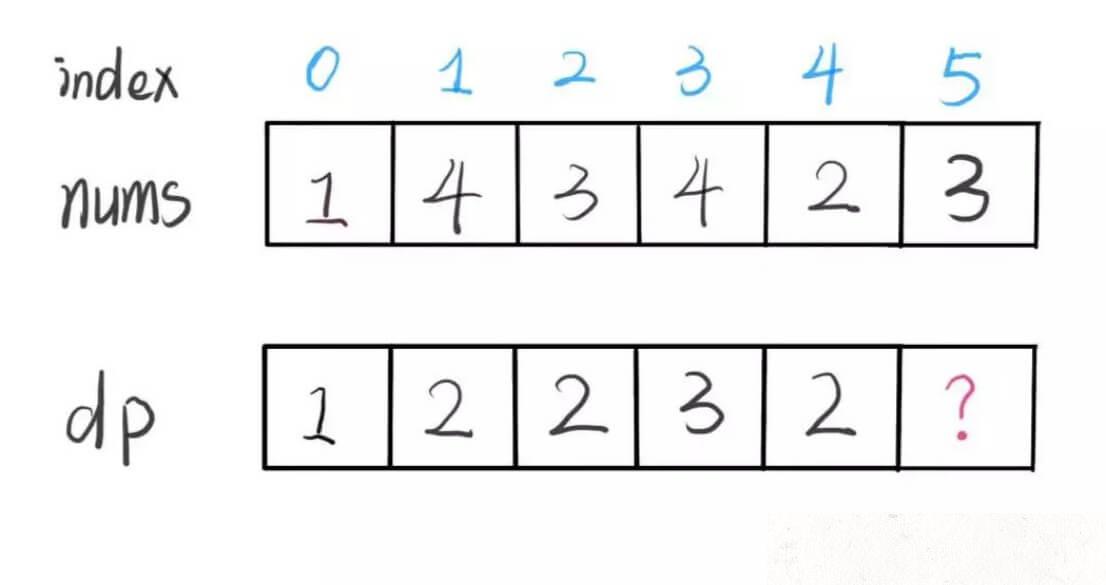 index 0 1 2 3 4 5
nums 1 4 3 4 2 3
dp 1 2 2 3 2 ?